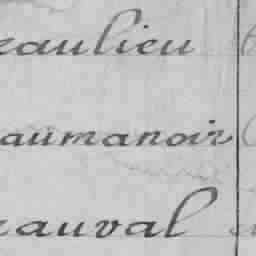 eaulieu
aumanoir
eauval